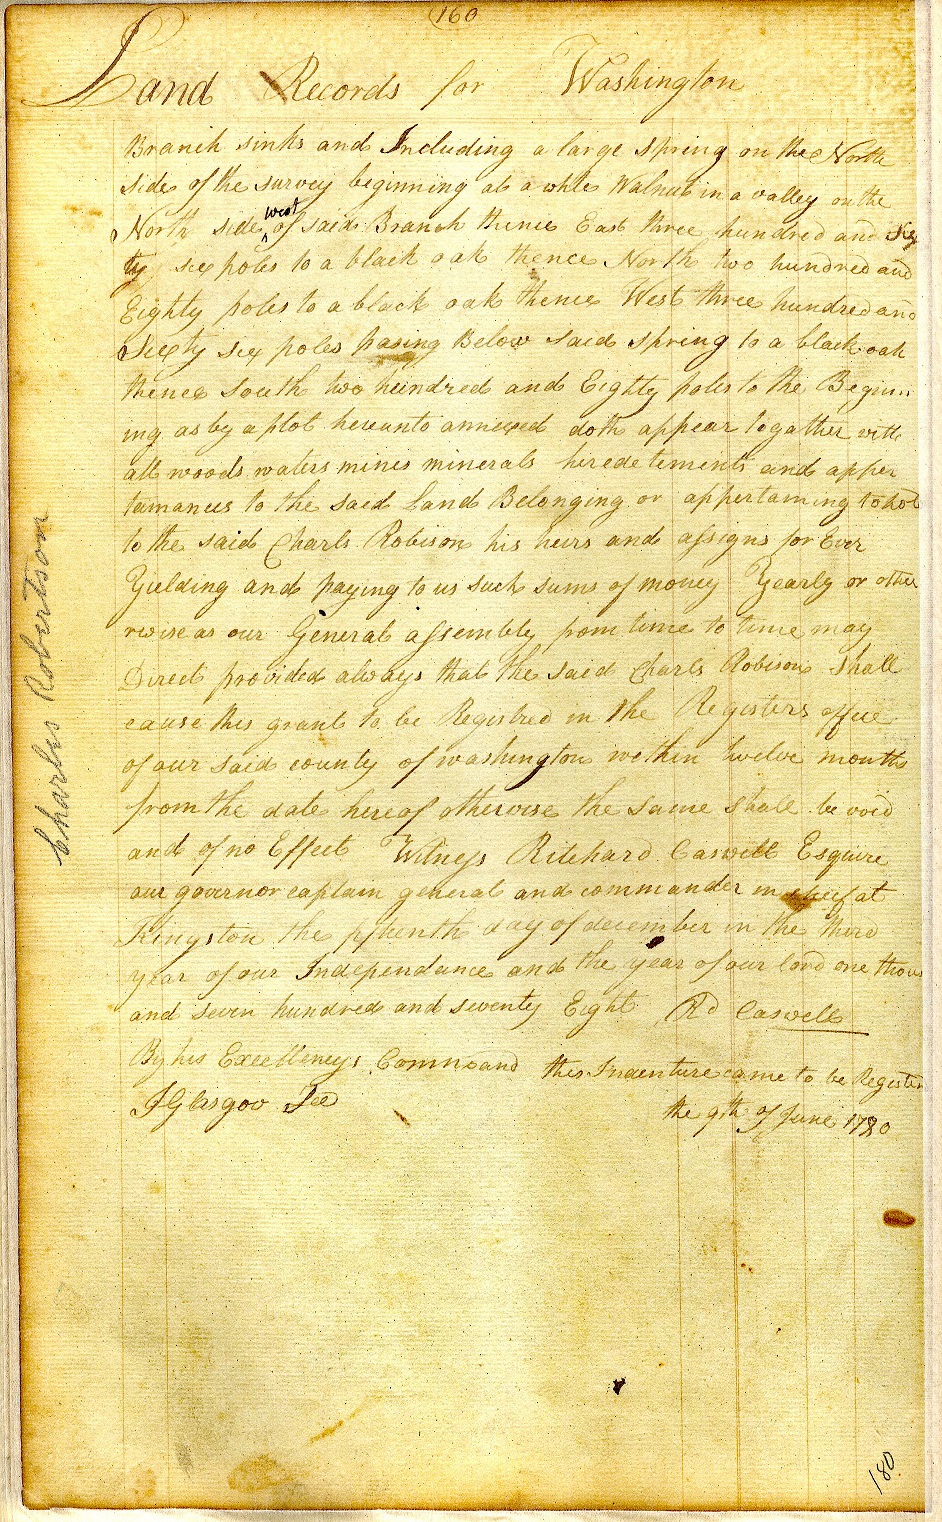 160
Land Records for Washington
Branch sinks and Including a large spring on the North
side of the survey beginning at a white Walnut in a valley on the
west
North side of said Branch thence East three hundred and Six
ty six poles to a black oak thence North two hundred and
Eighty poles to a black oak thence West three hundred and
Sixty six poles pasing Below said spring to a black oak
thence south two hundred and Eighty poles to the Beginn
ing as by a plot hereunto annexed doth appear togather with
all woods waters mines minerals heredetements and apper
tanances to the said Land Belonging or appertaining to hold
to the said Charls Robison his heirs and assigns for Ever
Yielding and paying to us such sums of money Yearly or other
rwise as our General assembly from time to time may
Direct provided always that the said Charls Robison Shall
cause this grant to be Registred in the Registers office
of our said county of washington within twelve months
from the date hereof otherwise the same shall be void
and of no Effect Witness Ritchard Caswell Esquire
our governor captain general and commander in cheif at
Kingston the fifteenth day of december in the third
year of our Independance and the year of our lord one thous
and seven hundred and seventy Eight Rd Caswell
By his Excellencys Command this Indenture came to be Register
J Glasgov Sec the 9th of June 1780
Charles Robertson
180